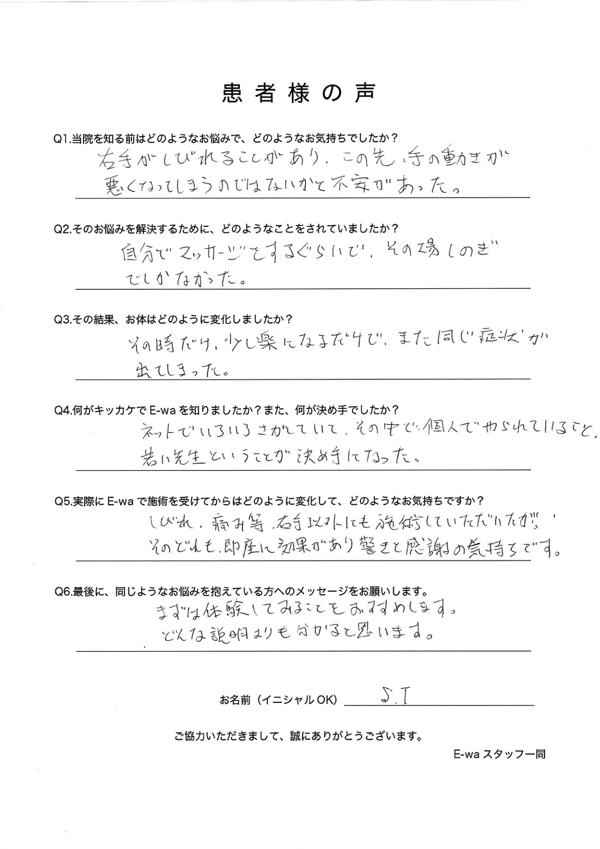 患者様の声
Q1.当院を知る前はどのようなお悩みで、どのようなお気持ちでしたか？
右手がしびれることがあり、この先、手の動きが
悪くなってしまうのではないかと不安があった。
Q2.そのお悩みを解決するために、どのようなことをされていましたか？
自分でマッサージをするぐらいで、その場しのぎ
でしかなかった。
Q3.その結果、お体はどのように変化しましたか？
その時だけ、少し楽になるだけで、また同じ症状が
出てしまった。
Q4.何がキッカケでE-waを知りましたか？また、何が決め手でしたか？
ネットでいろいろさがしていて、その中で、個人でやられていること、
若い先生ということが決め手になった。
Q5.実際にE-waで施術を受けてからはどのように変化して、どのようなお気持ちですか？
しびれ、痛み等、右手以外にも施術していただいたが、
そのどれも、即座に効果があり驚きと感謝の気持ちです。
Q6.最後に、同じようなお悩みを抱えている方へのメッセージをお願いします。
まずは体験してみることをおすすめします。
どんな説明よりも分かると思います。
お名前（イニシャルOK） S.T
ご協力いただきまして、誠にありがとうございます。
E-waスタッフ一同